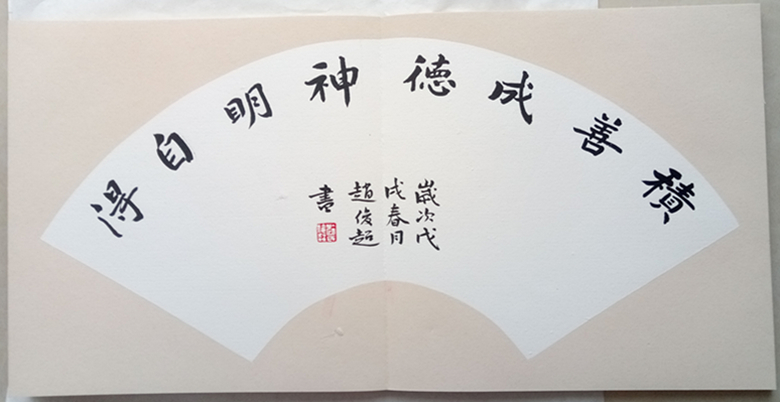 積善成德神明自得
歲次戊
戌春月
趙俊超
書